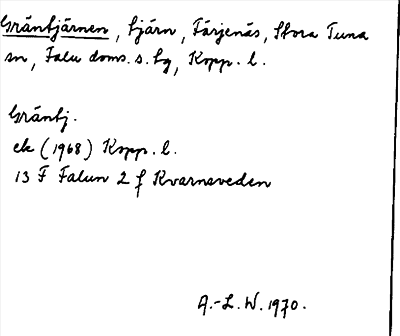 Gräntjärnen, tjärn, Färjenäs, Stora Tuna
sn, Falu doms. s. lg, Kopp. l.
Gräntj.
ek (1968) Kopp. l.
13 F Falun 2 f Kvarnsveden
A.-L. W. 1970.